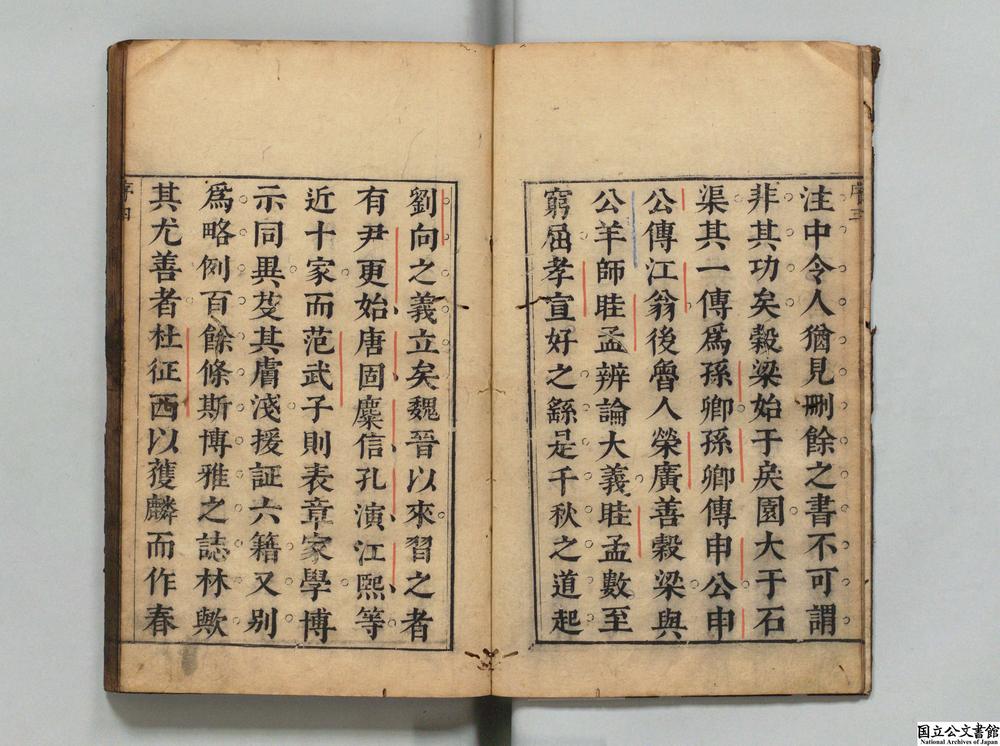 注中令人猶見刪餘之書不可謂
非其功矣穀梁始于戾園大于石
渠其一傳爲孫卿孫卿傳申公申
公傳江翁後魯人榮廣善穀梁與
公羊師眭孟辨論大義眭孟數至
窮屈孝宣好之繇是千秋之道起
劉向之義立矣魏晉以來習之者
有尹更始唐固麋信孔演江熙等
近十家而范武子則表章家學博
示同異芟其膚淺援証六籍又別
爲略例百餘條斯博雅之誌林歟
其尤善者杜征西以獲麟而作春
序四
国立公文書館
National Archives of Japan